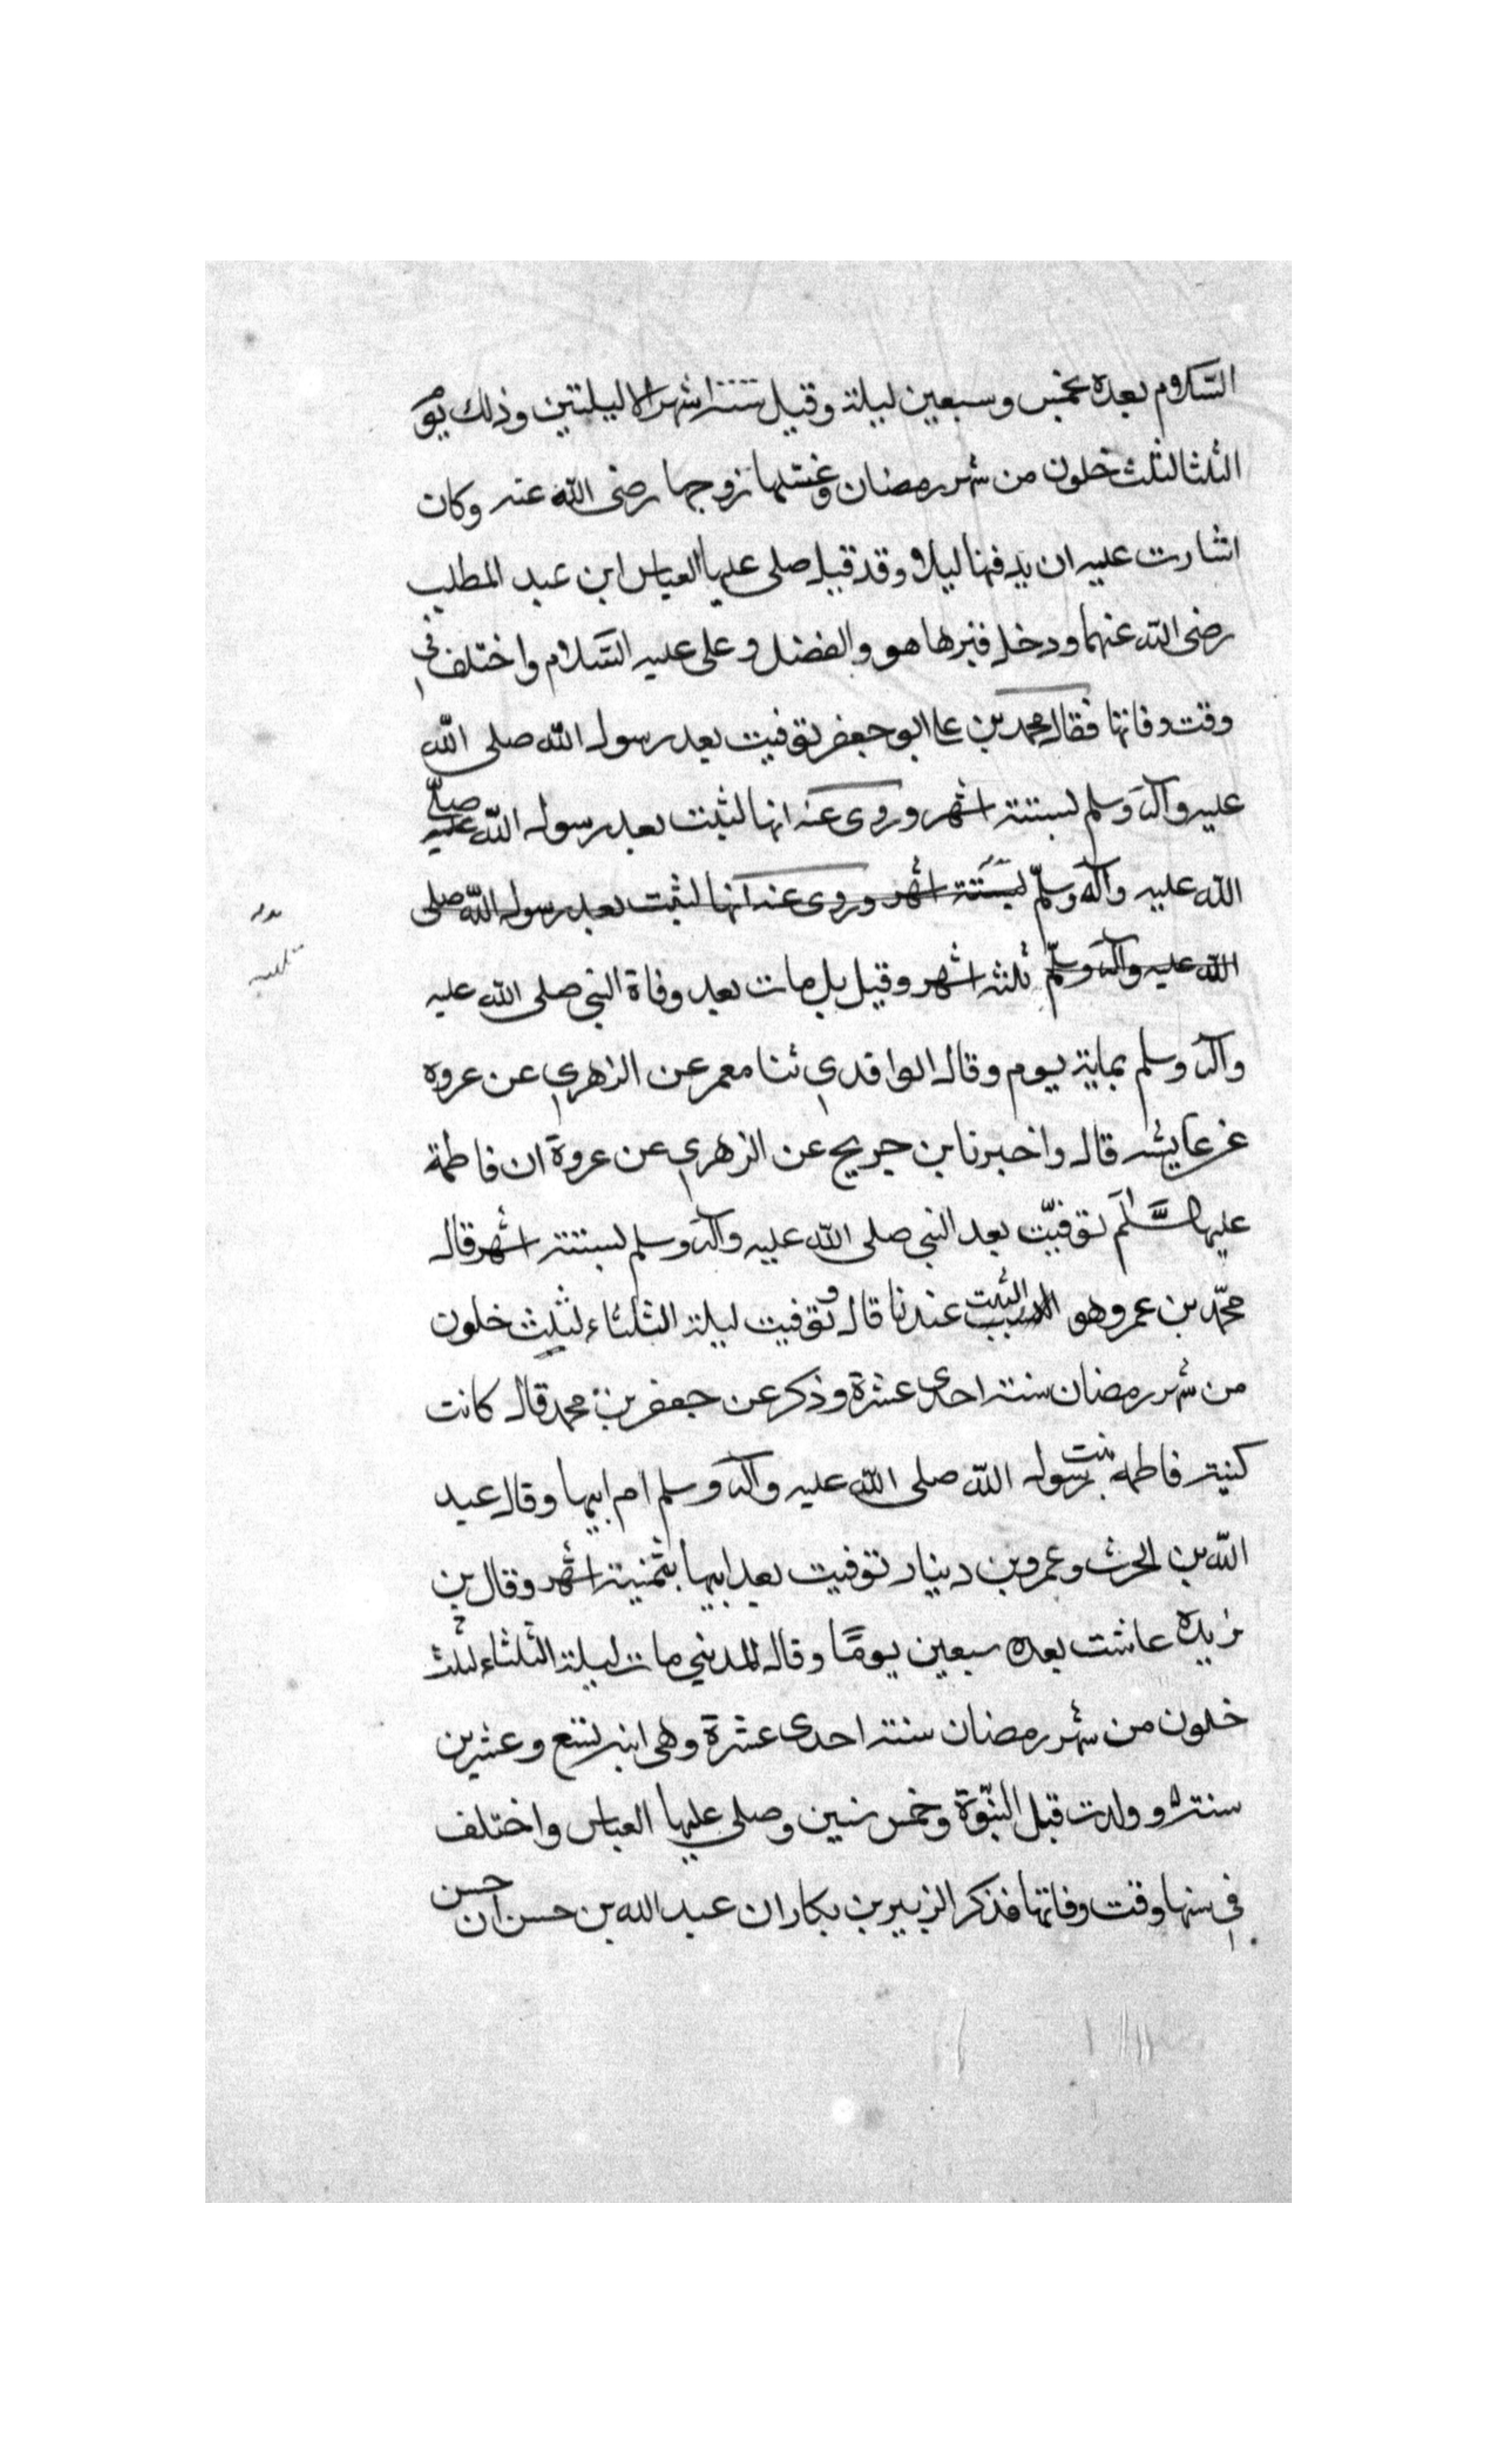 السّلام بعده بخمس وسبعين ليلة وقيل ستة اشهر الا ليلتين وذلك يوم
الثلثا لثلث خلون من شهر رمضان وغسّلها زوجها رضى الله عنه وكانت
اشارت عليه ان يدفنها ليلا وقد قيل صلى عليها العباس ابن عبد المطلب
رضى الله عنهما ودخل قبرها هو والفضل وعلى عليه السّلام واختلف في
وقت وفاتها فقال محمد بن على ابو جعفر توفيت بعد رسول الله صلى الله
عليه وآله وسلم لستة اشهر وروى عنه انها لبثت بعد رسول الله صلى
الله عليه وآله وسلّم لستة اشهر وروى عنه انها لبثت بعد رسول الله صلى
الله عليه وآله وسلّم ثلثه اشهر وقيل بل ماتت بعد وفاة النبي صلى الله عليه
وآله وسلم بماية يوم وقال الواقدي ثنا معمر عن الزهري عن عروه
عن عايشه قال واخبرنا بن جريج عن الزهري عن عروة ان فاطمة
عليها السَّلَم توفيّت بعد النبي صلى الله عليه وآله وسلم لستة اشهر قال
محمّد بن عمر وهو الثبت عندنا قال وتوفيت ليلة الثلثاء لثلث خلون
من شهر رمضان سنة احدى عشرة وذكر عن جعفر بن محمد قال كانت
كنية فاطمه بنت رسول الله صلى الله عليه وآله وسلم ام ابيها وقال عبد
الله بن الحرث وعمرو بن دينار توفيت بعد ابيها بثمنية اشهر وقال بن
بريده عاشت بعده سبعين يومًا وقال المديني ماتت ليلة الثلثاء لثلث
خلون من شهر رمضان سنة احدى عشرة وهى ابنه تسع وعشرين
سنة وولدت قبل النبّوة وخمس سنين وصلى عليها العباس واختلف
في سنها وقت وفاتها فذكر الزبير بن بكار ان عبد الله بن حسن ان حسن